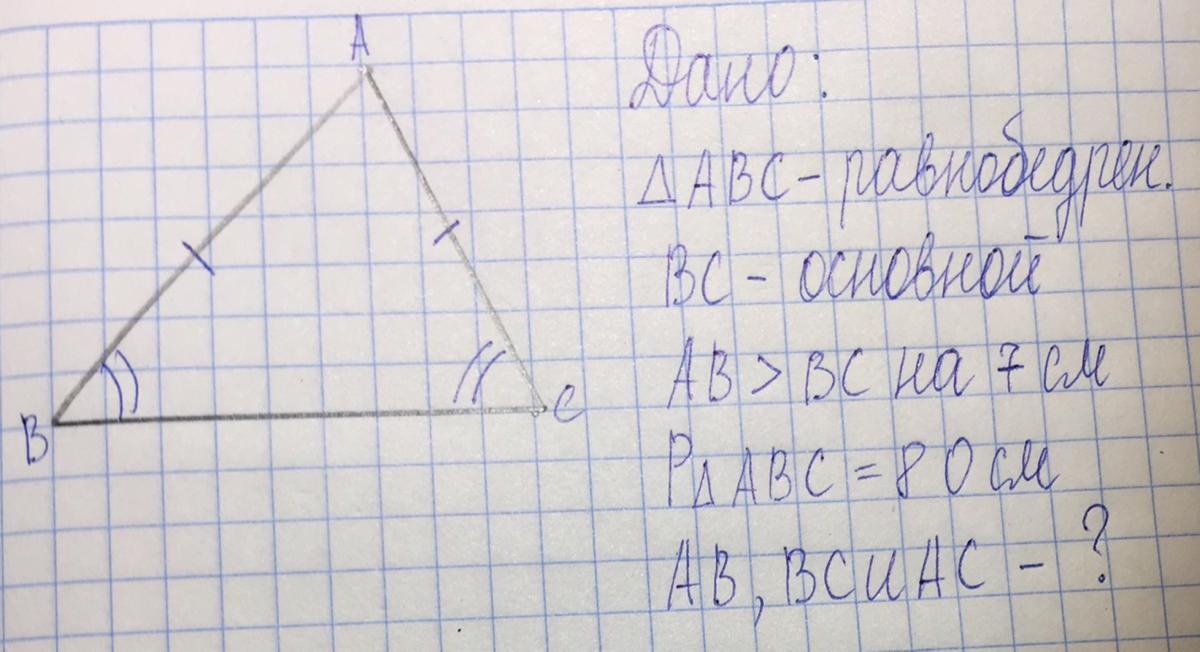 A
B
C
Дано:
△ABC - равнобедрен.
BC - основной
AB > BC на 7 см
P△ABC = 80 см
AB, BC и AC - ?